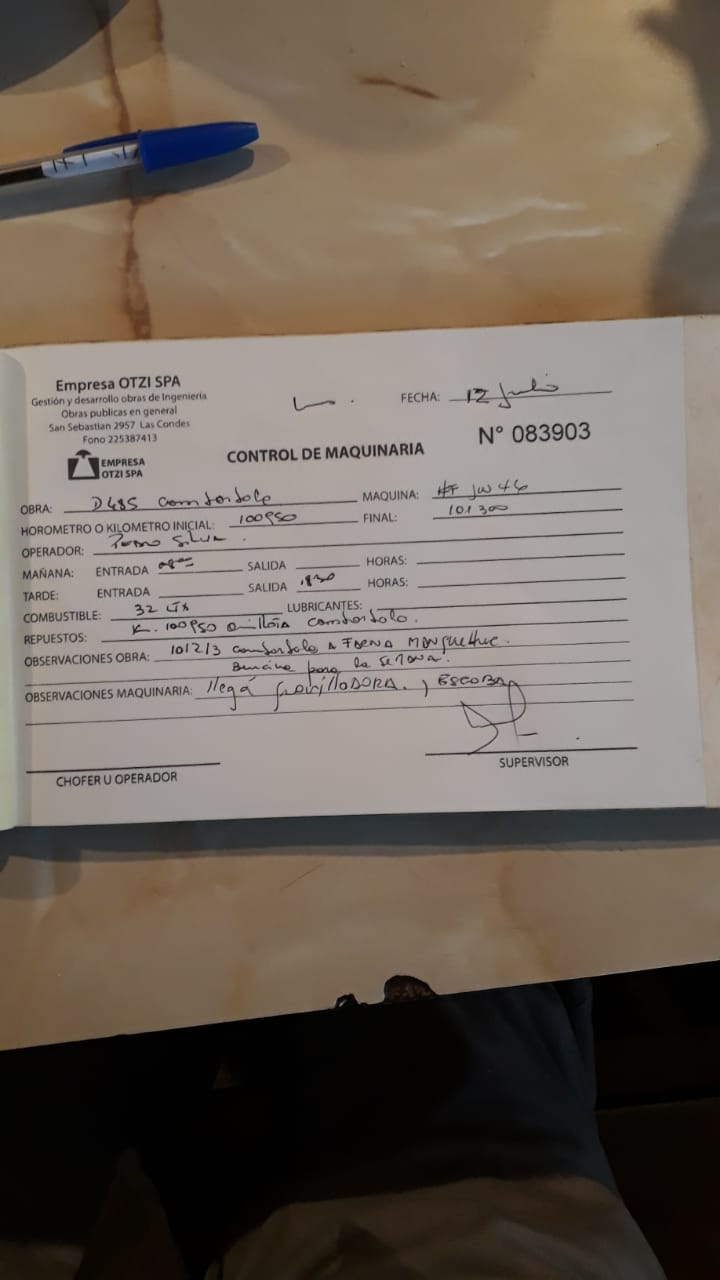 Empresa OTZI SPA
Gestión y desarrollo obras de Ingenieria
Obras publicas en general
San Sebastian 2957 Las Condes
Fono 225387413
EMPRESA
OTZI SPA
FECHA: 12 Julio
CONTROL DE MAQUINARIA
N° 083903
OBRA: D485 MAQUINA: JW 46
HOROMETRO O KILOMETRO INICIAL: 100950 FINAL: 101300
OPERADOR: Pedro Silva.
MAÑANA: ENTRADA SALIDA HORAS:
TARDE: ENTRADA SALIDA 1830 HORAS:
COMBUSTIBLE: 32 LUBRICANTES:
REPUESTOS: K. 100950
OBSERVACIONES OBRA: 101213 A
para la
OBSERVACIONES MAQUINARIA: llegá gravilladora. y ESCOBA
CHOFER U OPERADOR
SUPERVISOR